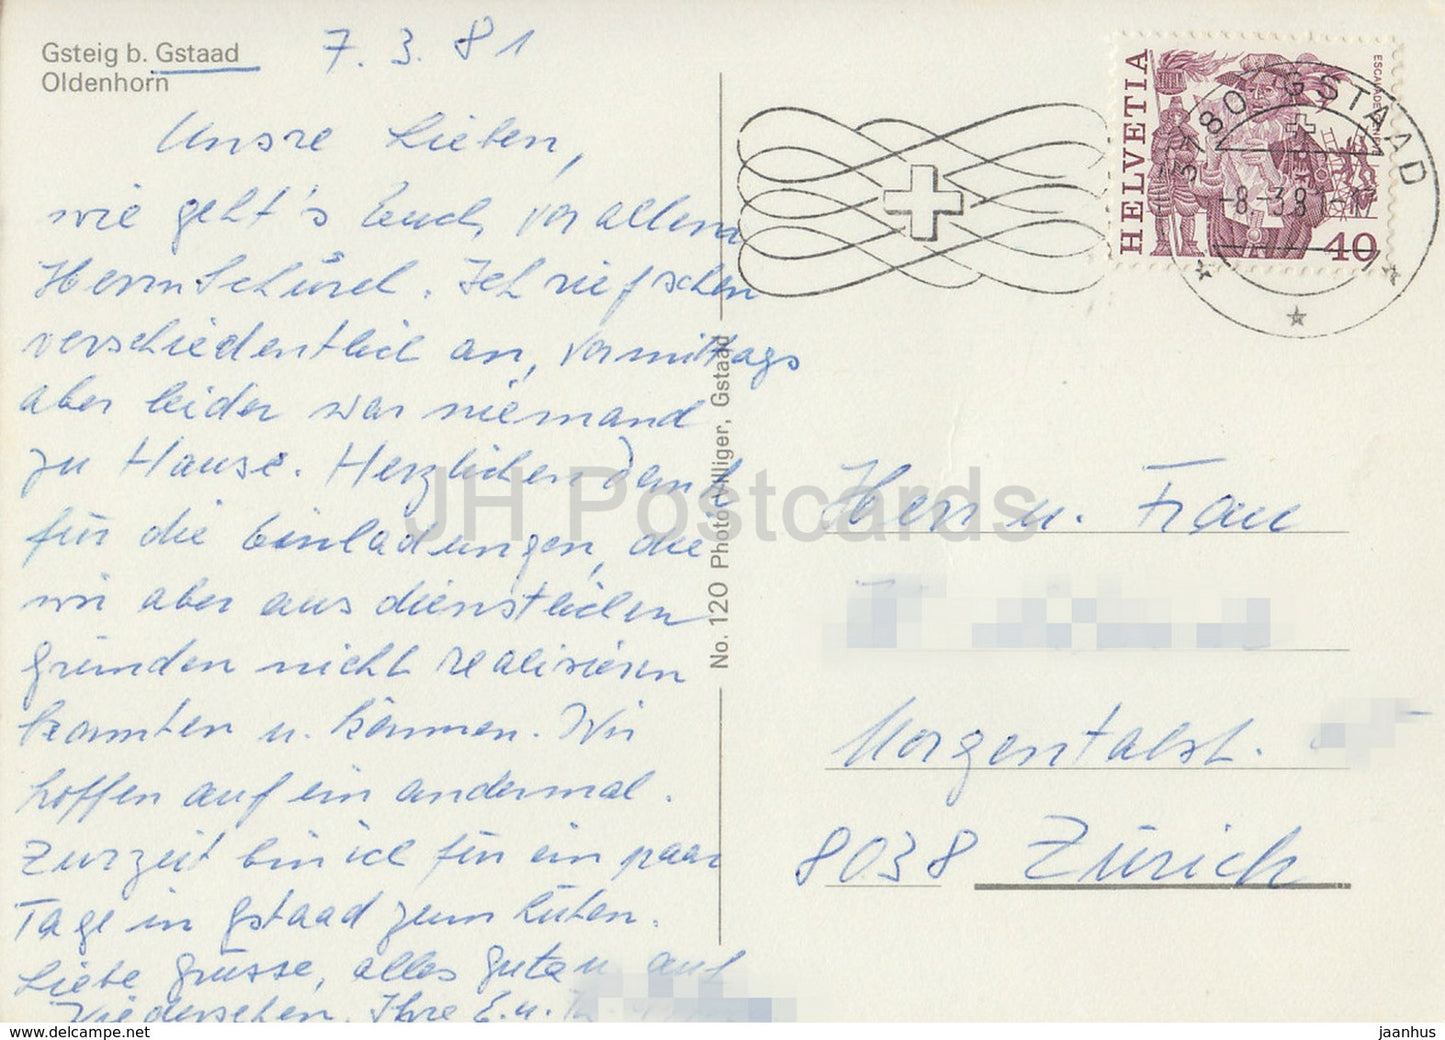 Gsteig b. Gstaad
Oldenhorn
7.3.81
Unsre Lieben,
wie geht's Euch, vor allem
Herrn Schürch. Ich rief schon
verschiedentlich an, vormittags
aber leider war niemand
zu Hause. Herzlichen Dank
für die Einladungen, die
wir aber aus dienstlichen
Gründen nicht realisieren
konnten u. können. Wir
hoffen auf ein andermal.
Zurzeit bin ich für ein paar
Tage in Gstaad zum
Liebe Grüsse, alles Gute u auf
Wiedersehen, Ihre E. u.
No. 120 Photo Villiger, Gstaad
HELVETIA
40
3780 GSTAAD
-8.-3.81
Herr u. Frau
Morgentalst.
8038 Zürich
JH Postcards
delcampe.net
jaanhus